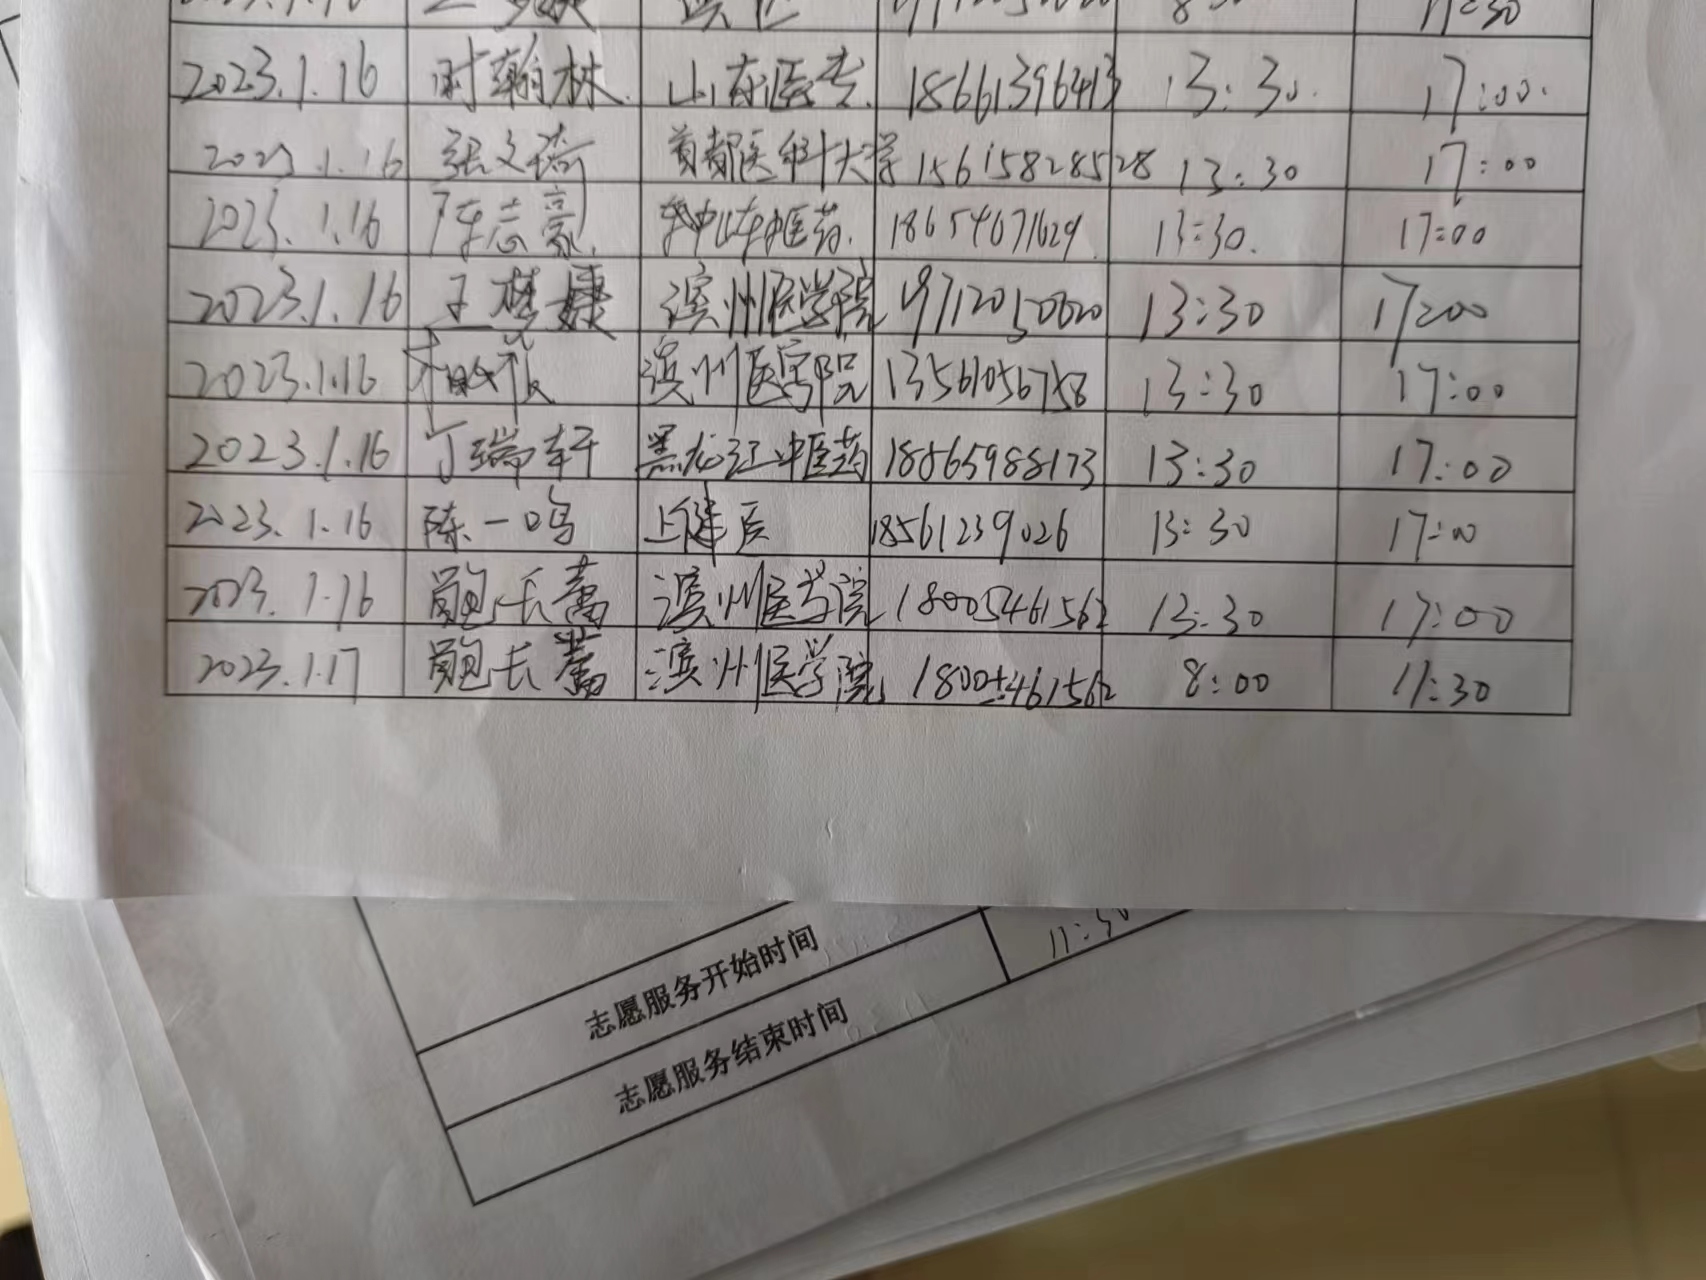 11:30
2023.1.16 时翰林. 山东医专. 18661396413 13:30. 17:00.
2023.1.16 张文琦 首都医科大学 15615828528 13:30 17:00
2023.1.16 陈志豪. 中医药. 18654671629. 13:30. 17:00
2023.1.16 王梦媛 滨州医学院 19712050620 13:30 17:00
2023.1.16 滨州医学院 13561056758 13:30 17:00
2023.1.16 丁瑞轩 黑龙江中医药 18865988173 13:30 17:00
2023.1.16 陈一鸣 上健医 18561239026 13:30 17:00
2023.1.16 鲍长蕾 滨州医学院 18005461562 13:30 17:00
2023.1.17 鲍长蕾 滨州医学院 18005461562 8:00 11:30
志愿服务开始时间
志愿服务结束时间 11:30